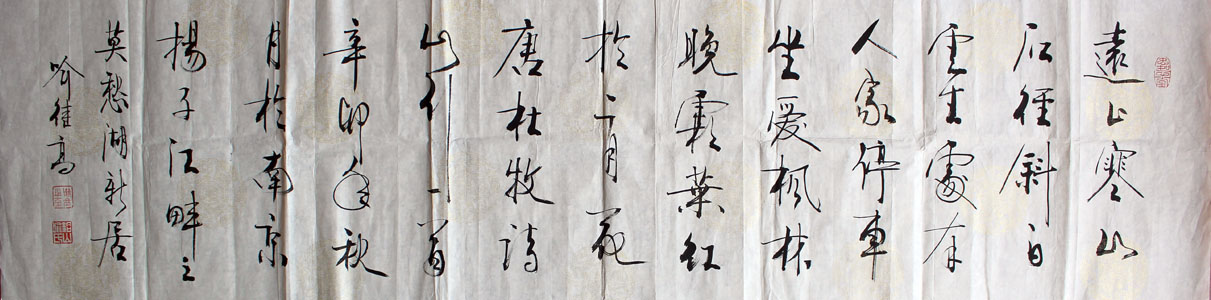 遠上寒山
石徑斜白
雲生處有
人家停車
坐愛楓林
晚霜葉紅
於二月花
唐杜牧詩
山行一首
辛卯年秋
月於南京
揚子江畔之
莫愁湖新居
喻高